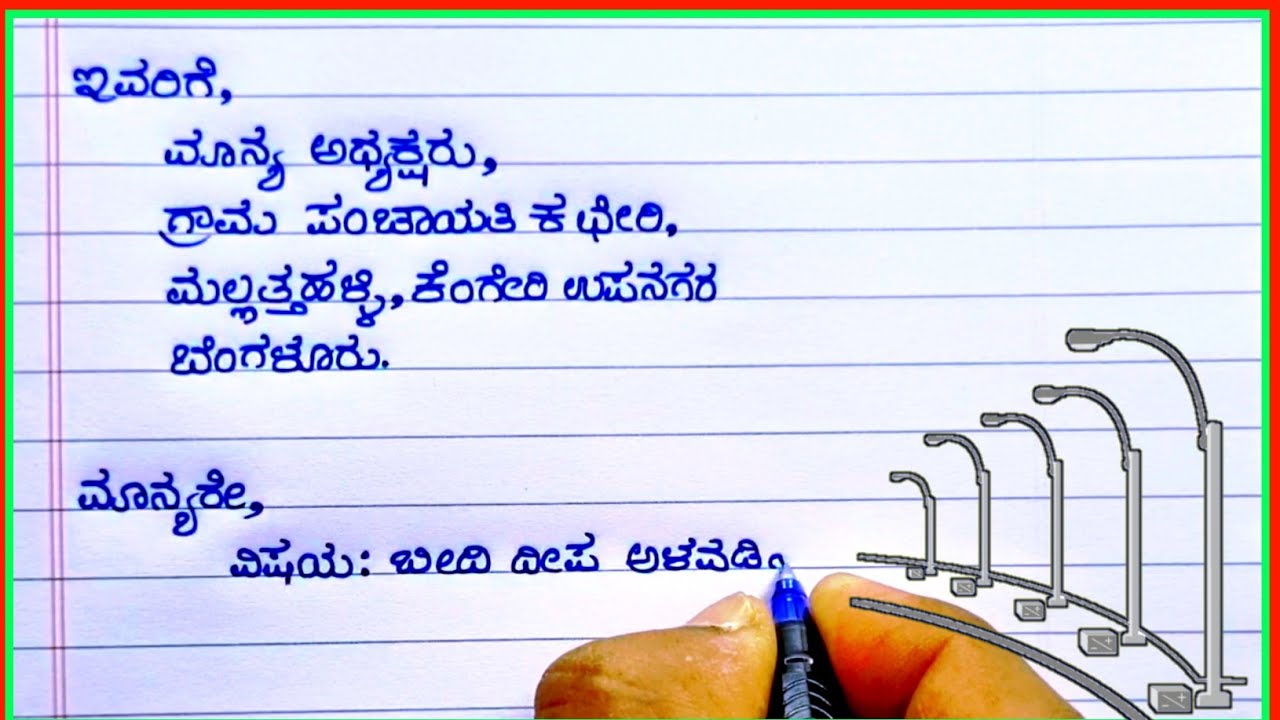 ಇವರಿಗೆ,
ಮಾನ್ಯ ಅಧ್ಯಕ್ಷರು,
ಗ್ರಾಮ ಪಂಚಾಯತಿ ಕಛೇರಿ,
ಮಲ್ಲತ್ತಹಳ್ಳಿ, ಕೆಂಗೇರಿ ಉಪನಗರ
ಬೆಂಗಳೂರು.
ಮಾನ್ಯರೇ,
ವಿಷಯ: ಬೀದಿ ದೀಪ